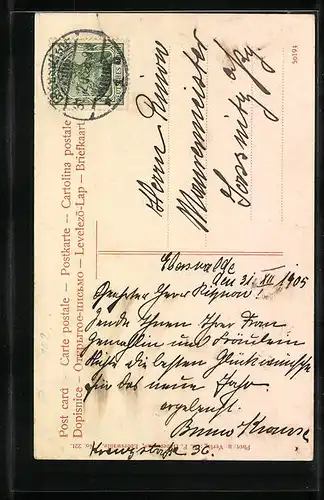 Post card — Carte postale — Postkarte — Cartolina postale
Dopisnice — Открытое письмо — Levelező-Lap — Briefkaart
Herrn
Maurermeister
Sassnitz a/Rg.
50194
Eberswalde
den 31. XII 1905
Geehrter Herr
Sende Ihnen Ihrer Frau
Gemahlin und Fräulein
die besten Glückwünsche
für das neue Jahr
ergebenst
Bruno Krause
Kreuzstrasse 26.